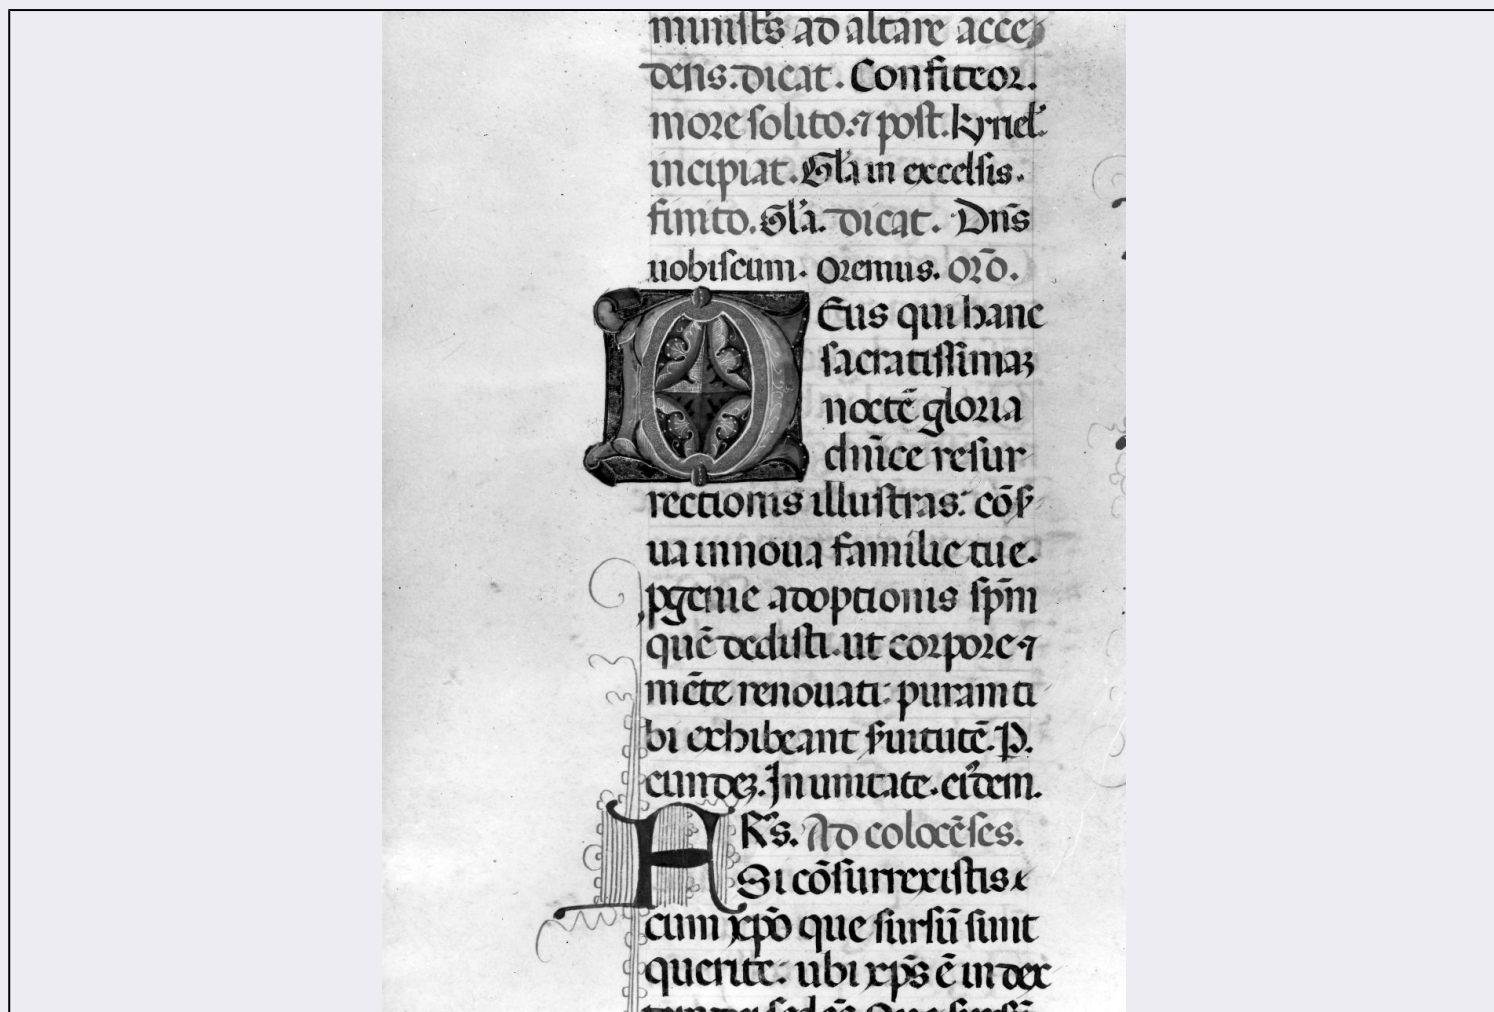 ministˢ ad altare acce
dens. dicat. Confiteor.
more solito. ⁊ post. kyriel'.
incipiat. Gl'a in excelsis.
finito. Gl'a. dicat. Dn̄s
uobiscum. Oremus. orō.
DEus qui hanc
sacratissimaꝫ
noctē gloria
dn̄ice resur
rectionis illustras: cōs̕
ua in noua familie tue.
ꝓgenie adoptionis sp̄m
quē dedisti. ut corpore ⁊
mēte renouati: puram ti
bi exhibeant s̕uitutē. P.
eundeꝫ. In unitate. ei'dem.
FR̄s. Ad colocēses.
Si cōsurrexistis
cum xp̄o que sursū sunt
querite: ubi xp̄s ē in dex